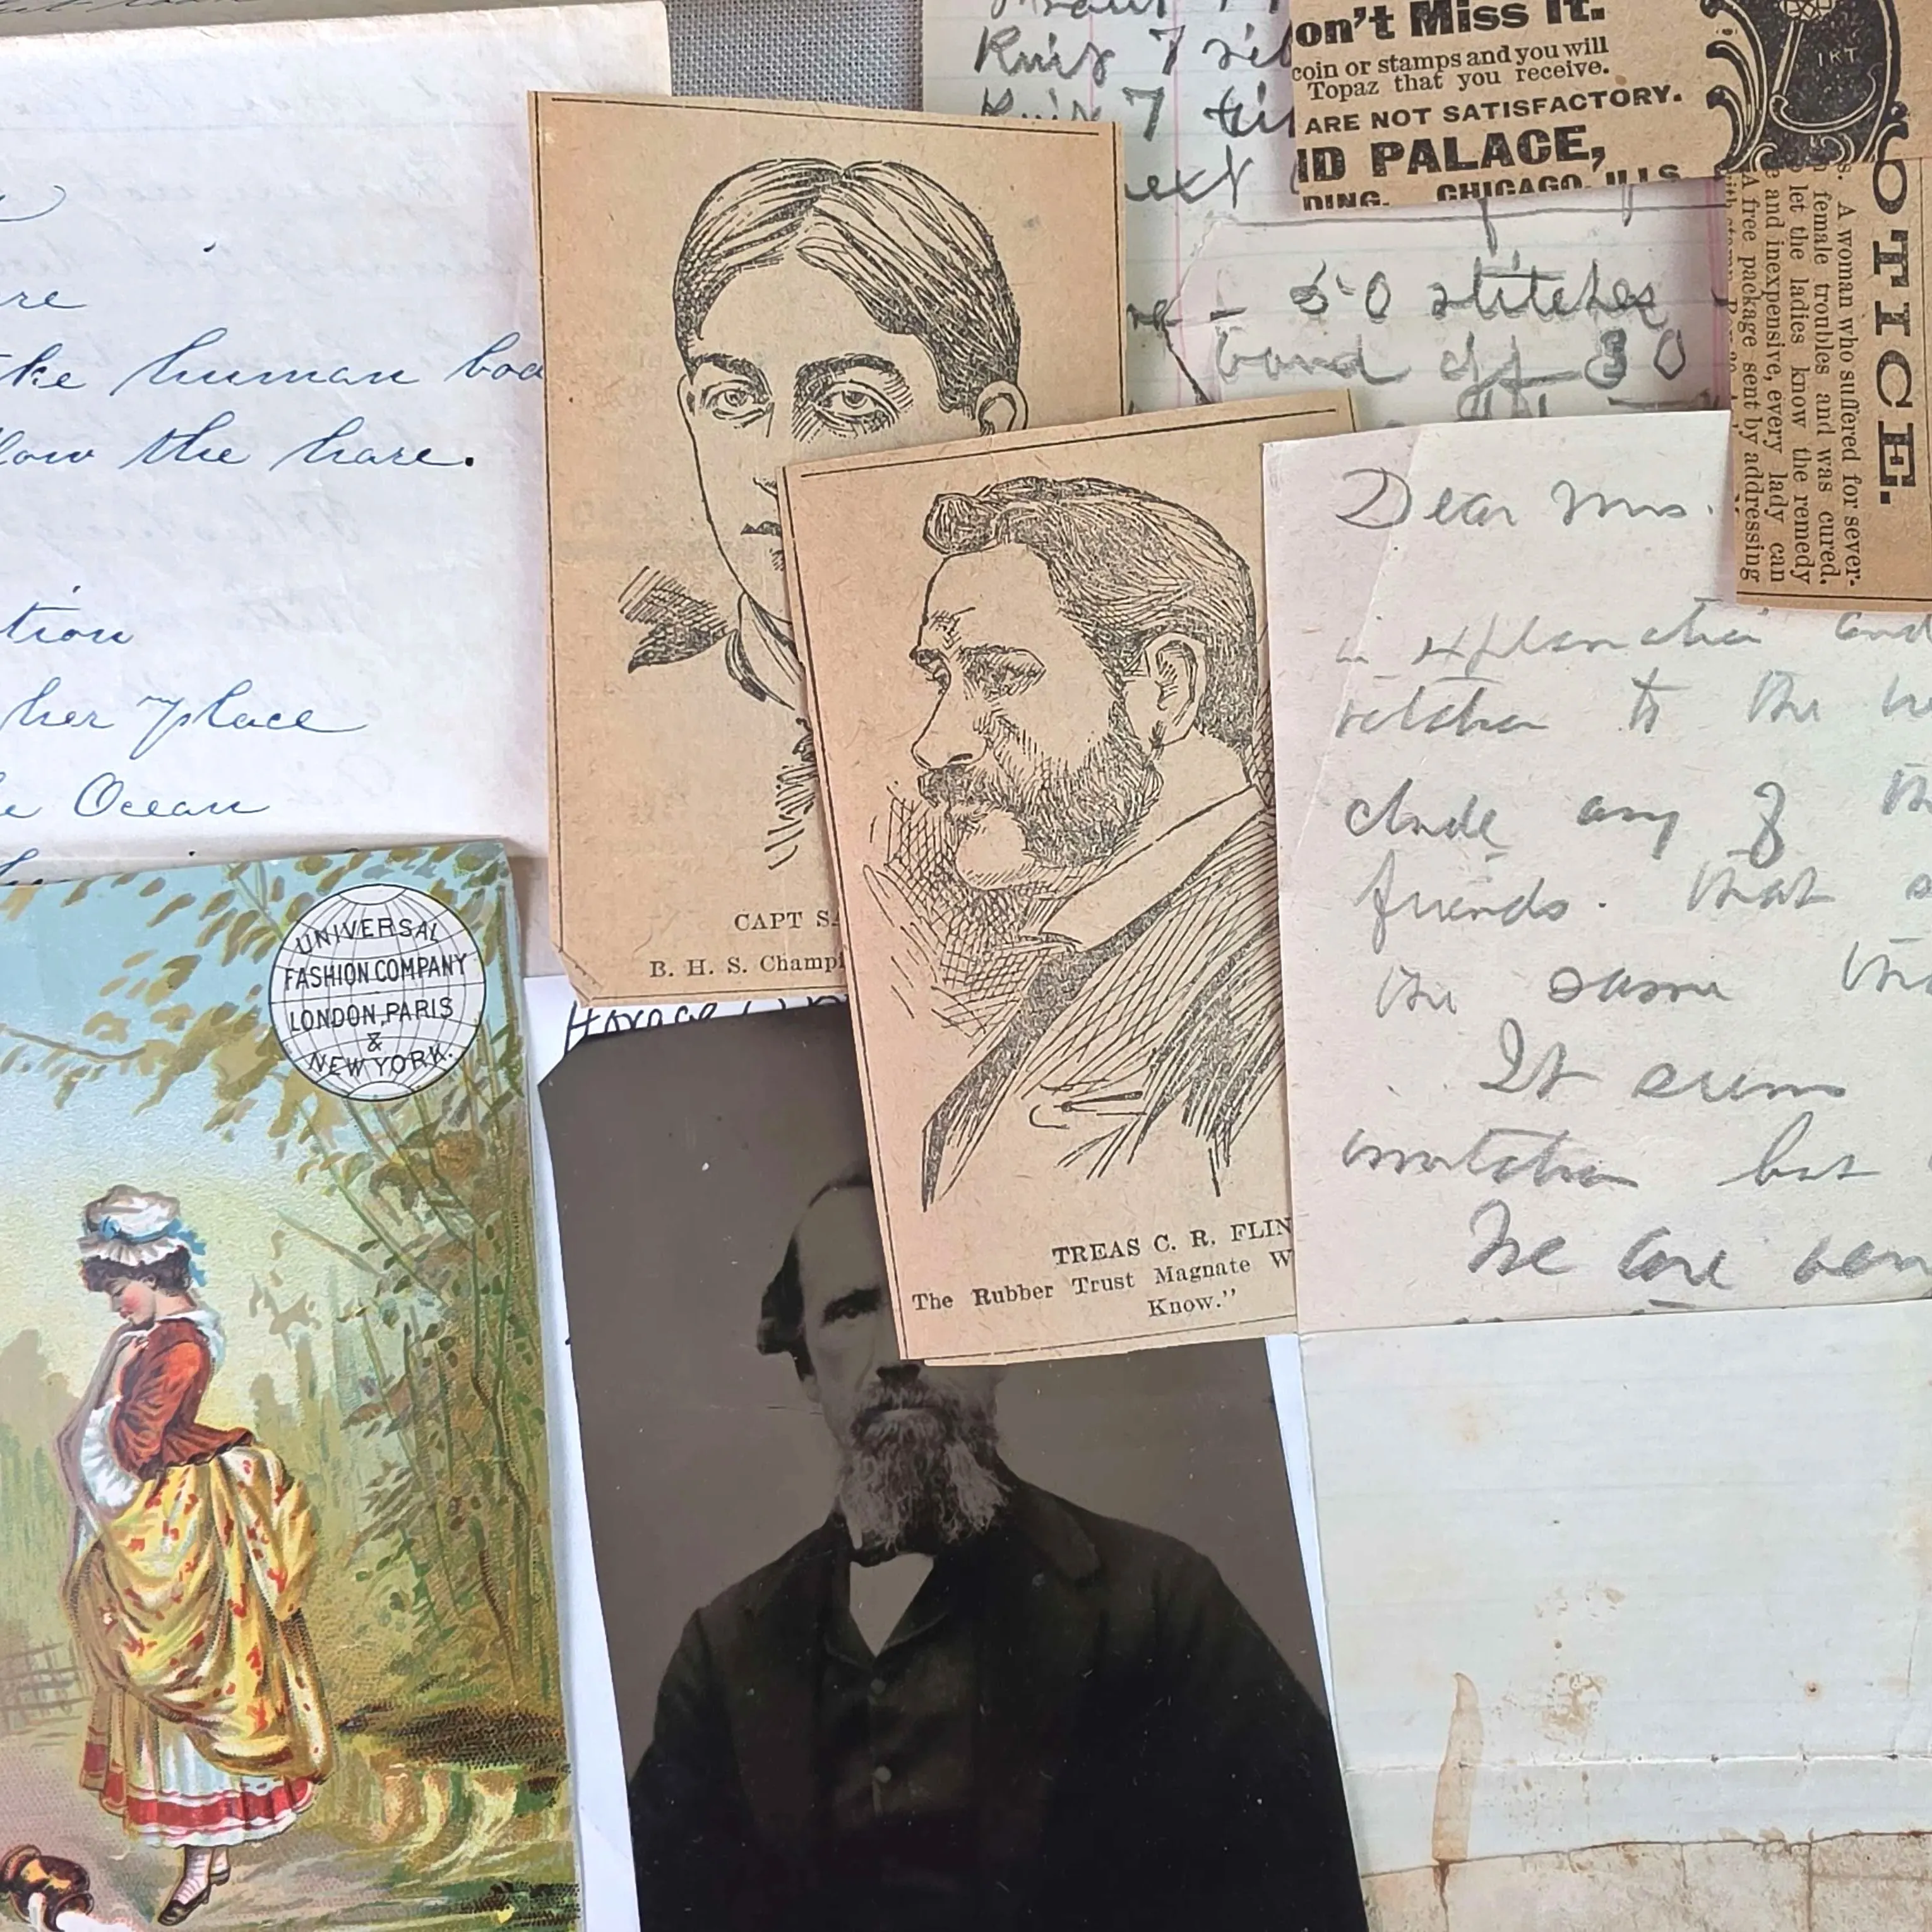 re
ke human bod
low the hare.
tion
her place
e Ocean
Knit 7
Knit 7
next
50 stitches
band off 30
on't Miss It.
coin or stamps and you will
Topaz that you receive.
ARE NOT SATISFACTORY.
ID PALACE,
DING. CHICAGO, ILLS.
1KT
OTICE.
s. A woman who suffered for sever-
female troubles and was cured.
let the ladies know the remedy
e and inexpensive, every lady can
A free package sent by addressing
with stamp
CAPT SA
B. H. S. Champi
TREAS C. R. FLIN
The Rubber Trust Magnate W
Know."
Dear Mrs.
in explanation and
to the
clude any of th
friends. that s
the same
It seems
invitation but
We are
UNIVERSAL
FASHION COMPANY
LONDON, PARIS
&
NEW YORK.
Horace